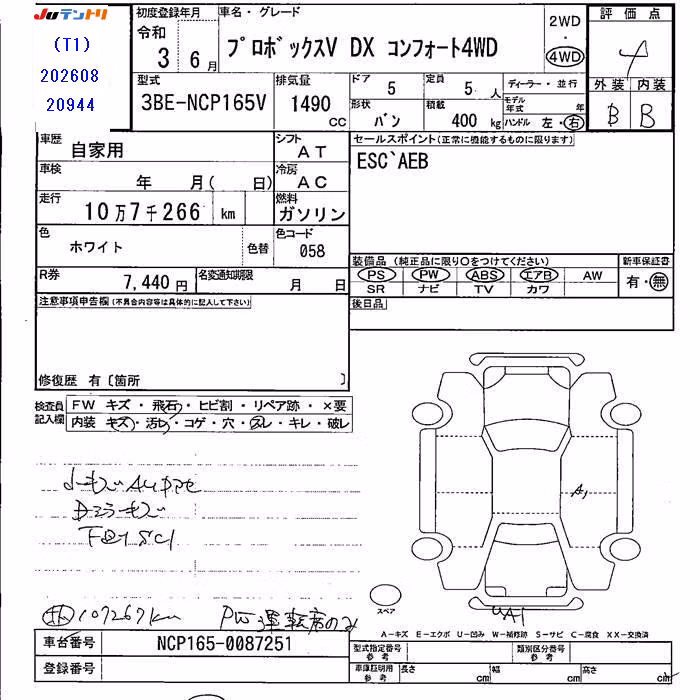 JUテントリ
(T1)
202608
20944
初度登録年月
令和
3 6月
車名・グレード
プロボックスV DX コンフォート4WD
2WD
・
4WD
評価点
4
外装 内装
B B
型式
3BE-NCP165V
排気量
1490 CC
ドア
5
定員
5 人
形状
バン
積載
400 kg
ディーラー・並行
モデル年式 年
ハンドル 左・右
車歴
自家用
シフト
AT
車検
年 月( 日)
冷房
AC
走行
10万7千266 km
燃料
ガソリン
色
ホワイト
色替
色コード
058
R券
7,440円
名変通知期限
月 日
セールスポイント(正常に機能するものに限ります)
ESC`AEB
装備品 (純正品に限り○をつけてください)
PS PW ABS エアB AW
SR ナビ TV カワ
新車保証書
有・無
後日品
注意事項申告欄(不具合内容等は具体的に記入して下さい)
修復歴 有〔箇所 〕
検査員記入欄
FW キズ・飛石・ヒビ割・リペア跡・×要
内装 キズ・汚れ・コゲ・穴・スレ・キレ・破レ
A1
107267km PW運転席のみ
スペア
A1
A-キズ E-エクボ U-凹み W-補修跡 S-サビ C-腐食 XX-交換済
車台番号
NCP165-0087251
登録番号
型式指定番号
参考
類別区分番号
参考
車庫証明用
参考
長さ cm 幅 cm 高さ cm